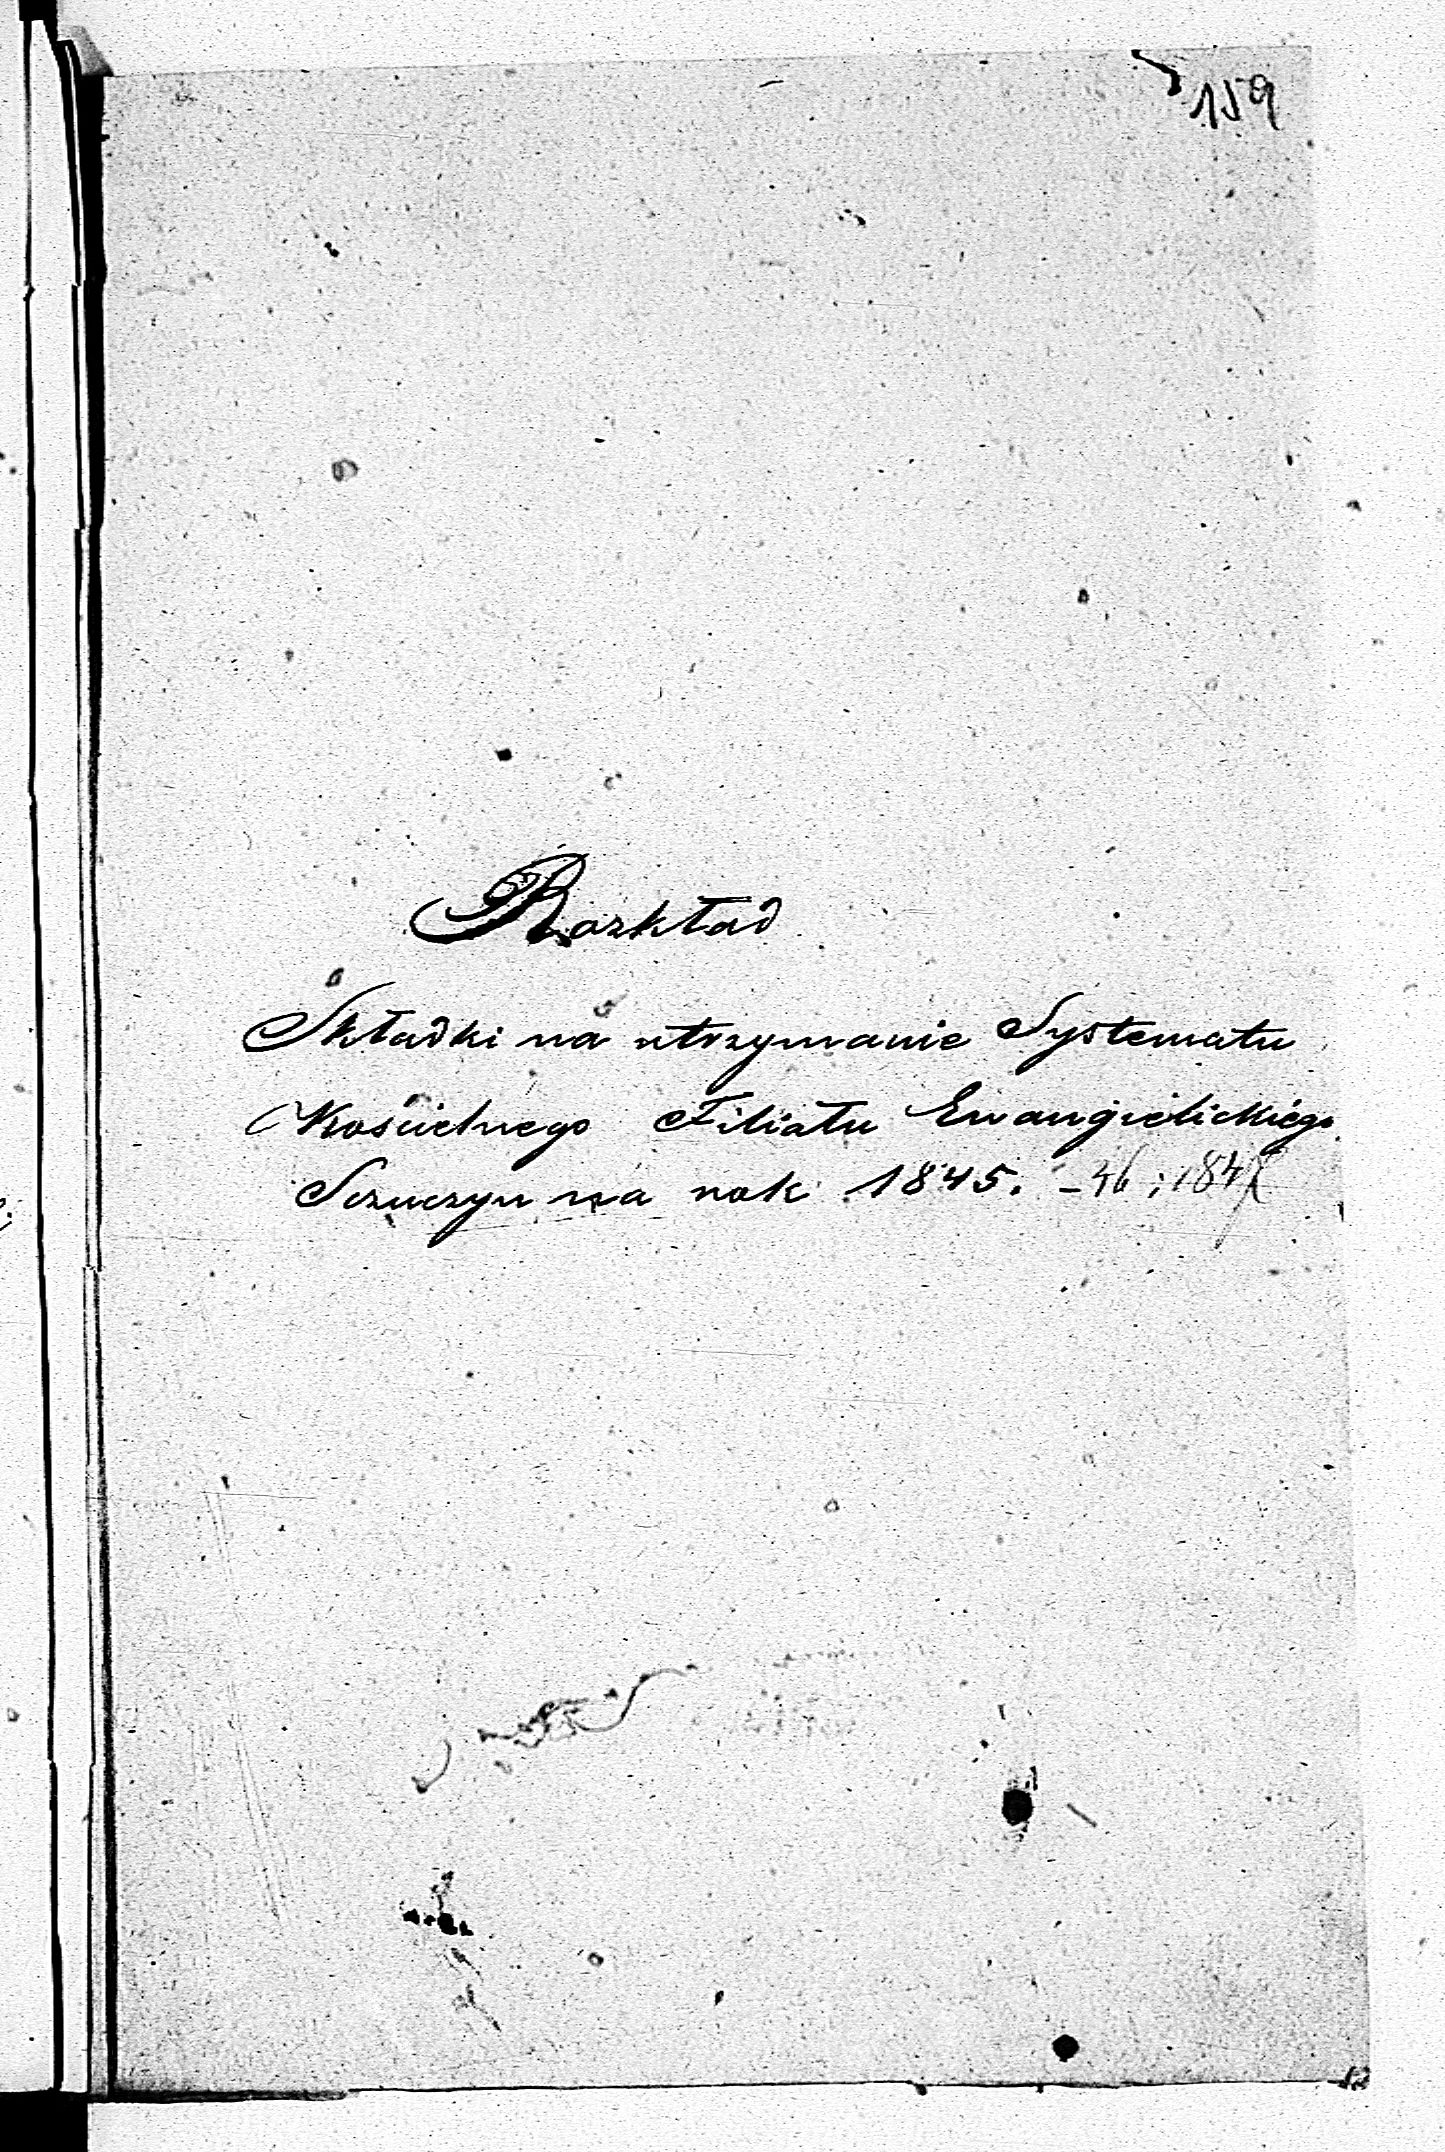 159
Rozkład
Składki na utrzymanie Systematu
Kościelnego Filiału Ewangielickiego
Szuczyn na rok 1845. - 46 : 1847